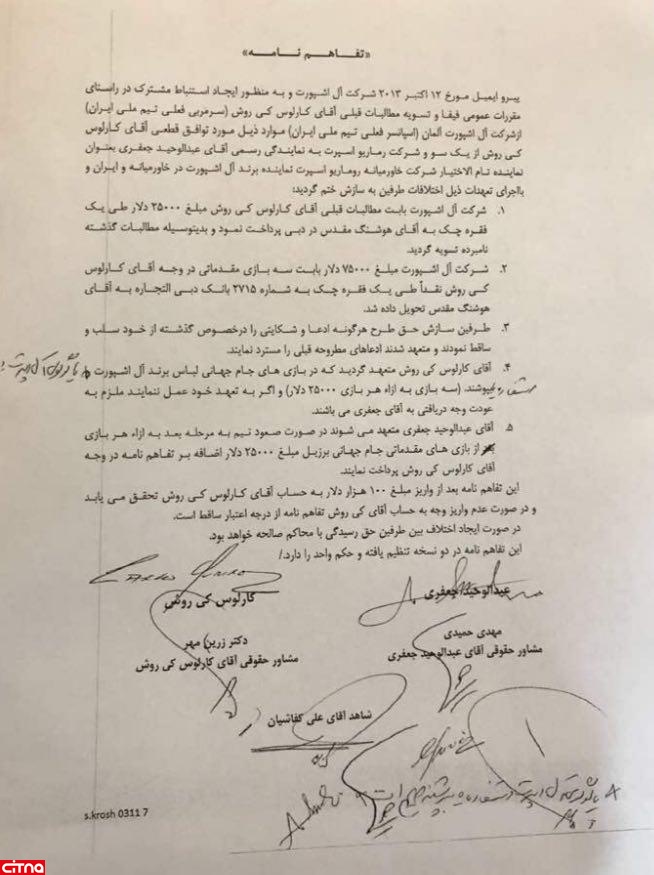 «تفاهم نامه»
پیرو ایمیل مورخ ۱۲ اکتبر ۲۰۱۳ شرکت آل اشپورت و به منظور ایجاد استنباط مشترک در راستای
مقررات عمومی فیفا و تسویه مطالبات قبلی آقای کارلوس کی روش (سرمربی فعلی تیم ملی ایران)
ازشرکت آل اشپورت آلمان (اسپانسر فعلی تیم ملی ایران) موارد ذیل مورد توافق قطعی آقای کارلوس
کی روش از یک سو و شرکت رماریو اسپرت به نمایندگی رسمی آقای عبدالوحید جعفری بعنوان
نماینده تام الاختیار شرکت خاورمیانه روماریو اسپرت نماینده برند آل اشپورت در خاورمیانه و ایران و
بااجرای تعهدات ذیل اختلافات طرفین به سازش ختم گردید:
۱. شرکت آل اشپورت بابت مطالبات قبلی آقای کارلوس کی روش مبلغ ۲۵۰۰۰ دلار طی یک
فقره چک به آقای هوشنگ مقدس در دبی پرداخت نمود و بدینوسیله مطالبات گذشته
نامبرده تسویه گردید.
۲. شرکت آل اشپورت مبلغ ۷۵۰۰۰ دلار بابت سه بازی مقدماتی در وجه آقای کارلوس
کی روش نقداً طی یک فقره چک به شماره ۲۷۱۵ بانک دبی التجاره به آقای
هوشنگ مقدس تحویل داده شد.
۳. طرفین سازش حق طرح هرگونه ادعا و شکایتی را درخصوص گذشته از خود سلب و
ساقط نمودند و متعهد شدند ادعاهای مطروحه قبلی را مسترد نمایند.
۴. آقای کارلوس کی روش متعهد گردید که در بازی های جام جهانی لباس برند آل اشپورت
بپوشند. (سه بازی به ازاء هر بازی ۲۵۰۰۰ دلار) و اگر به تعهد خود عمل ننمایند ملزم به
عودت وجه دریافتی به آقای جعفری می باشند.
۵. آقای عبدالوحید جعفری متعهد می شوند در صورت صعود تیم به مرحله بعد به ازاء هر بازی
از بازی های مقدماتی جام جهانی برزیل مبلغ ۲۵۰۰۰ دلار اضافه بر تفاهم نامه در وجه
آقای کارلوس کی روش پرداخت نمایند.
این تفاهم نامه بعد از واریز مبلغ ۱۰۰ هزار دلار به حساب آقای کارلوس کی روش تحقق می یابد
و در صورت عدم واریز وجه به حساب آقای کی روش تفاهم نامه از درجه اعتبار ساقط است.
در صورت ایجاد اختلاف بین طرفین حق رسیدگی با محاکم صالحه خواهد بود.
این تفاهم نامه در دو نسخه تنظیم یافته و حکم واحد را دارد./
عبدالوحید جعفری کارلوس کی روش
مهدی حمیدی دکتر زرین مهر
مشاور حقوقی آقای عبدالوحید جعفری مشاور حقوقی آقای کارلوس کی روش
شاهد آقای علی کفاشیان
s.krosh 0311 7
citna